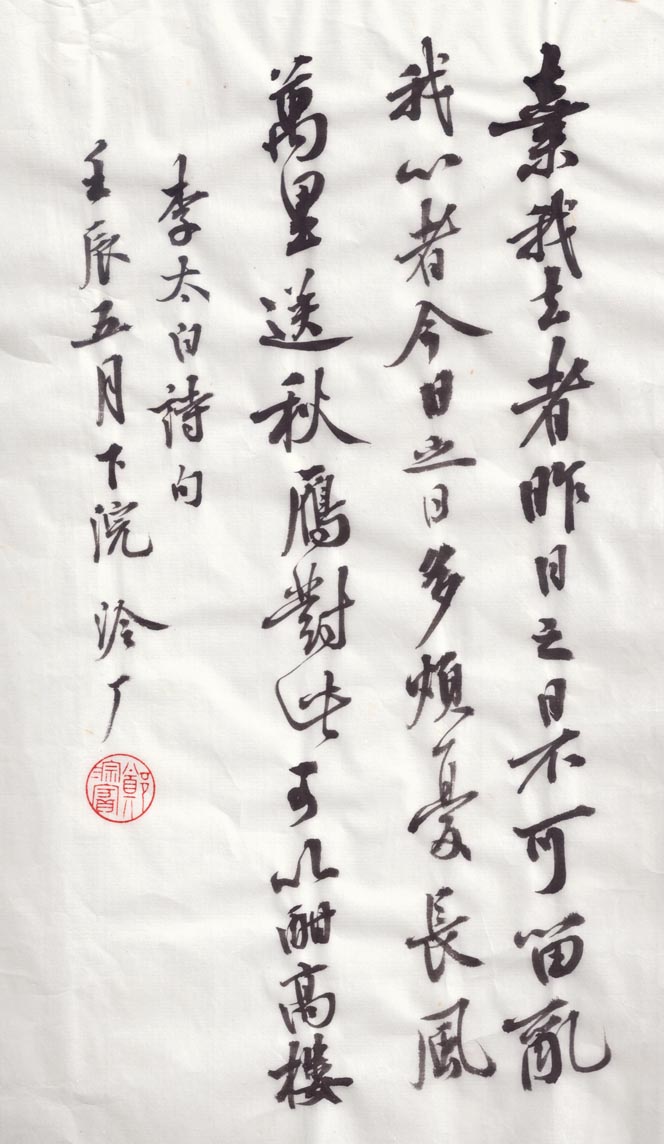 棄我去者昨日之日不可留亂
我心者今日之日多煩憂長風
萬里送秋鴈對此可以酣高樓
李太白詩句
壬辰五月下浣 泠厂